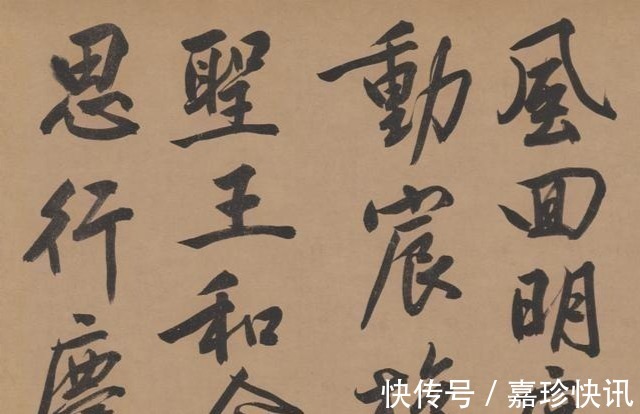 風回明
動宸
聖王和
思行慶
快传号 / 嘉珍快讯